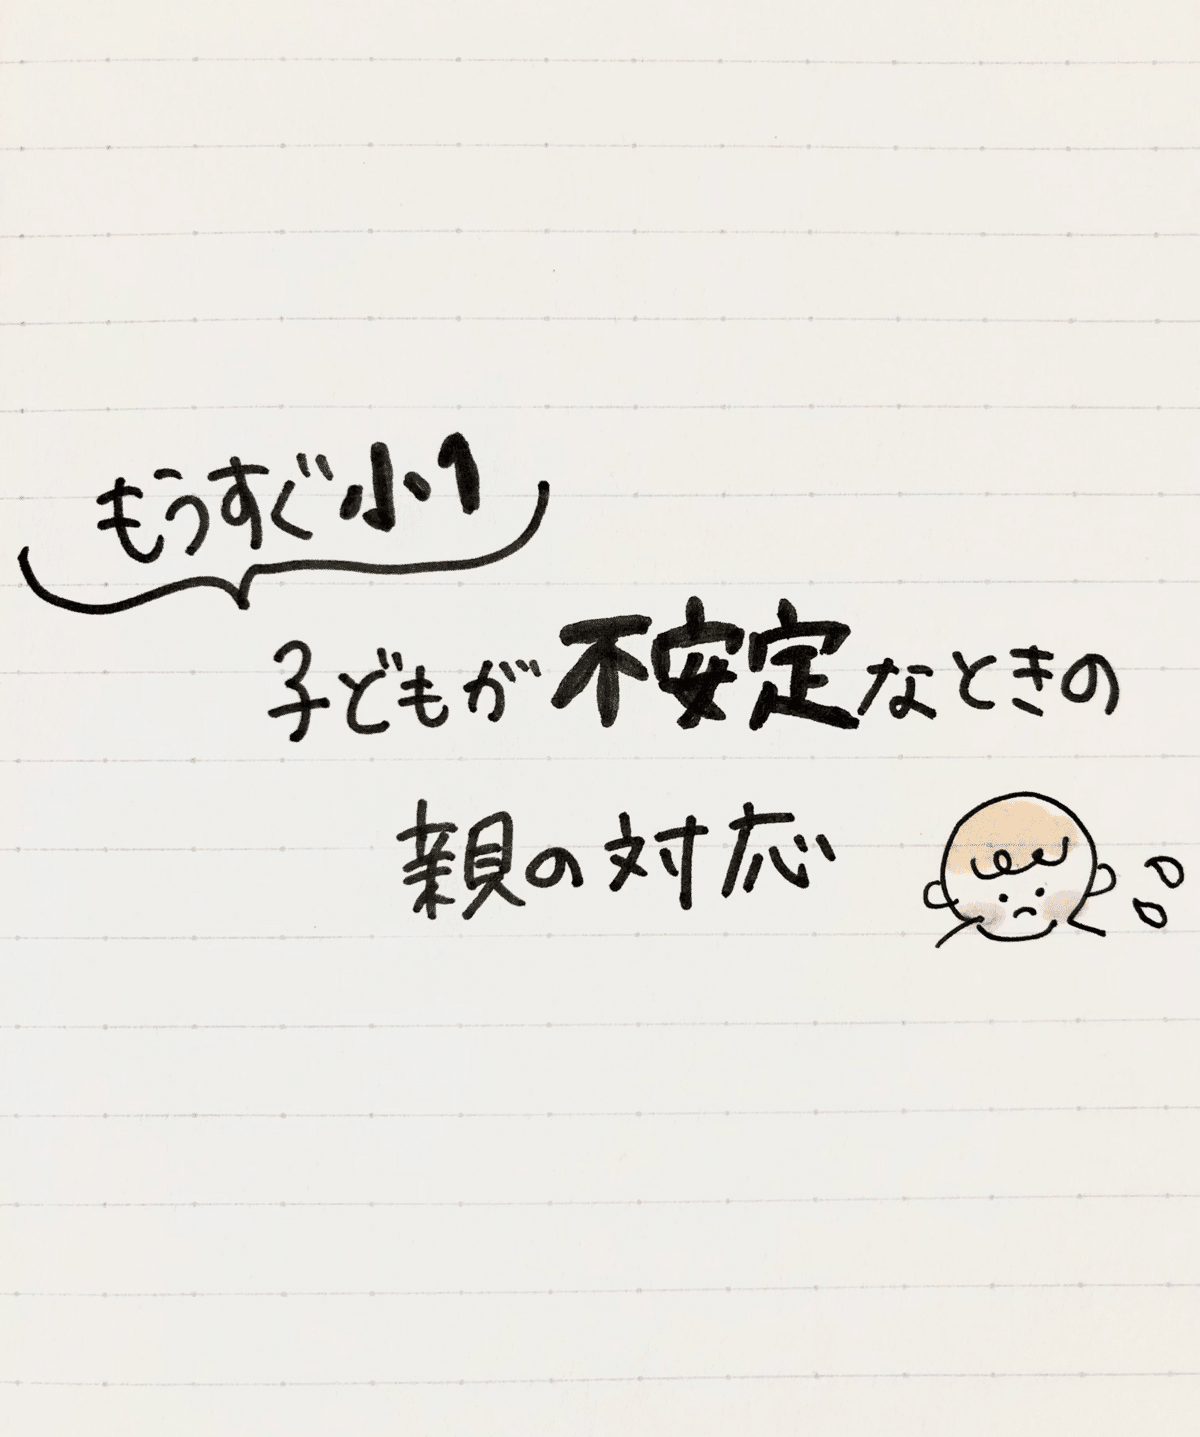 もうすぐ小1
子どもが不安定なときの
親の対応